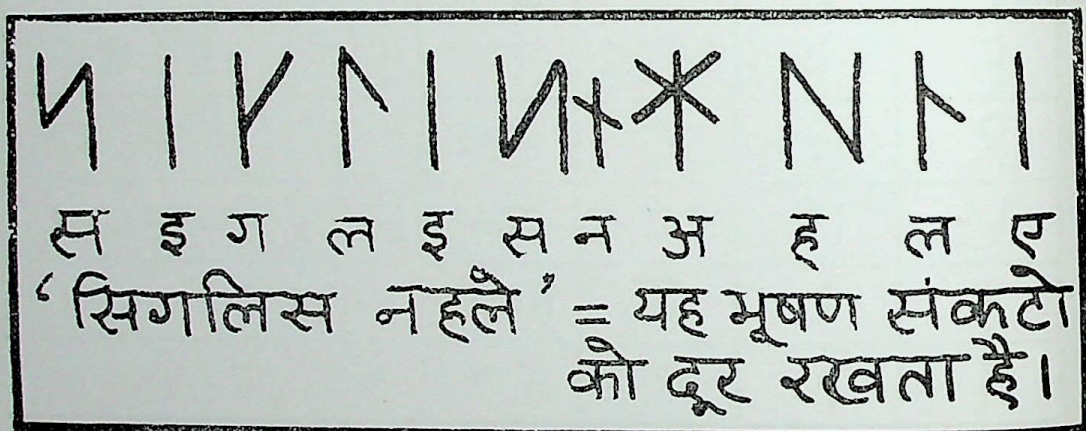 ᛋᛁᚴᛚᛁᛋᚾᛡᚺᛅᛁ
स इ ग ल इ स न अ ह ल ए
‘सिगलिस नहले’ = यह भूषण संकटो
को दूर रखता है।